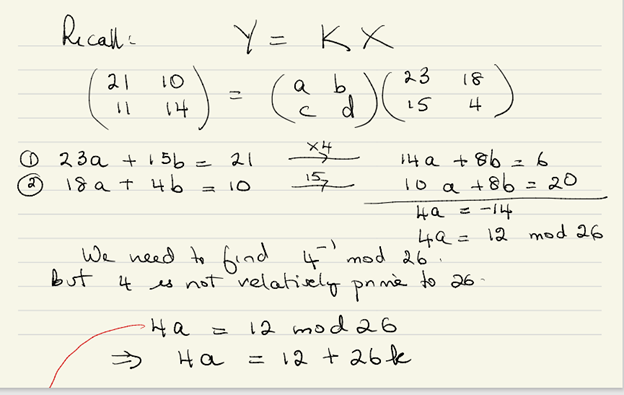 Recall: Y = K X
(21 10 = (a b (23 18
11 14) c d) 15 4)
① 23a + 15b = 21 ×4→ 14a + 8b = 6
② 18a + 4b = 10 15→ 10 a + 8b = 20
4a = -14
4a = 12 mod 26
We need to find 4⁻¹ mod 26.
But 4 is not relatively prime to 26.
4a = 12 mod 26
⇒ 4a = 12 + 26k